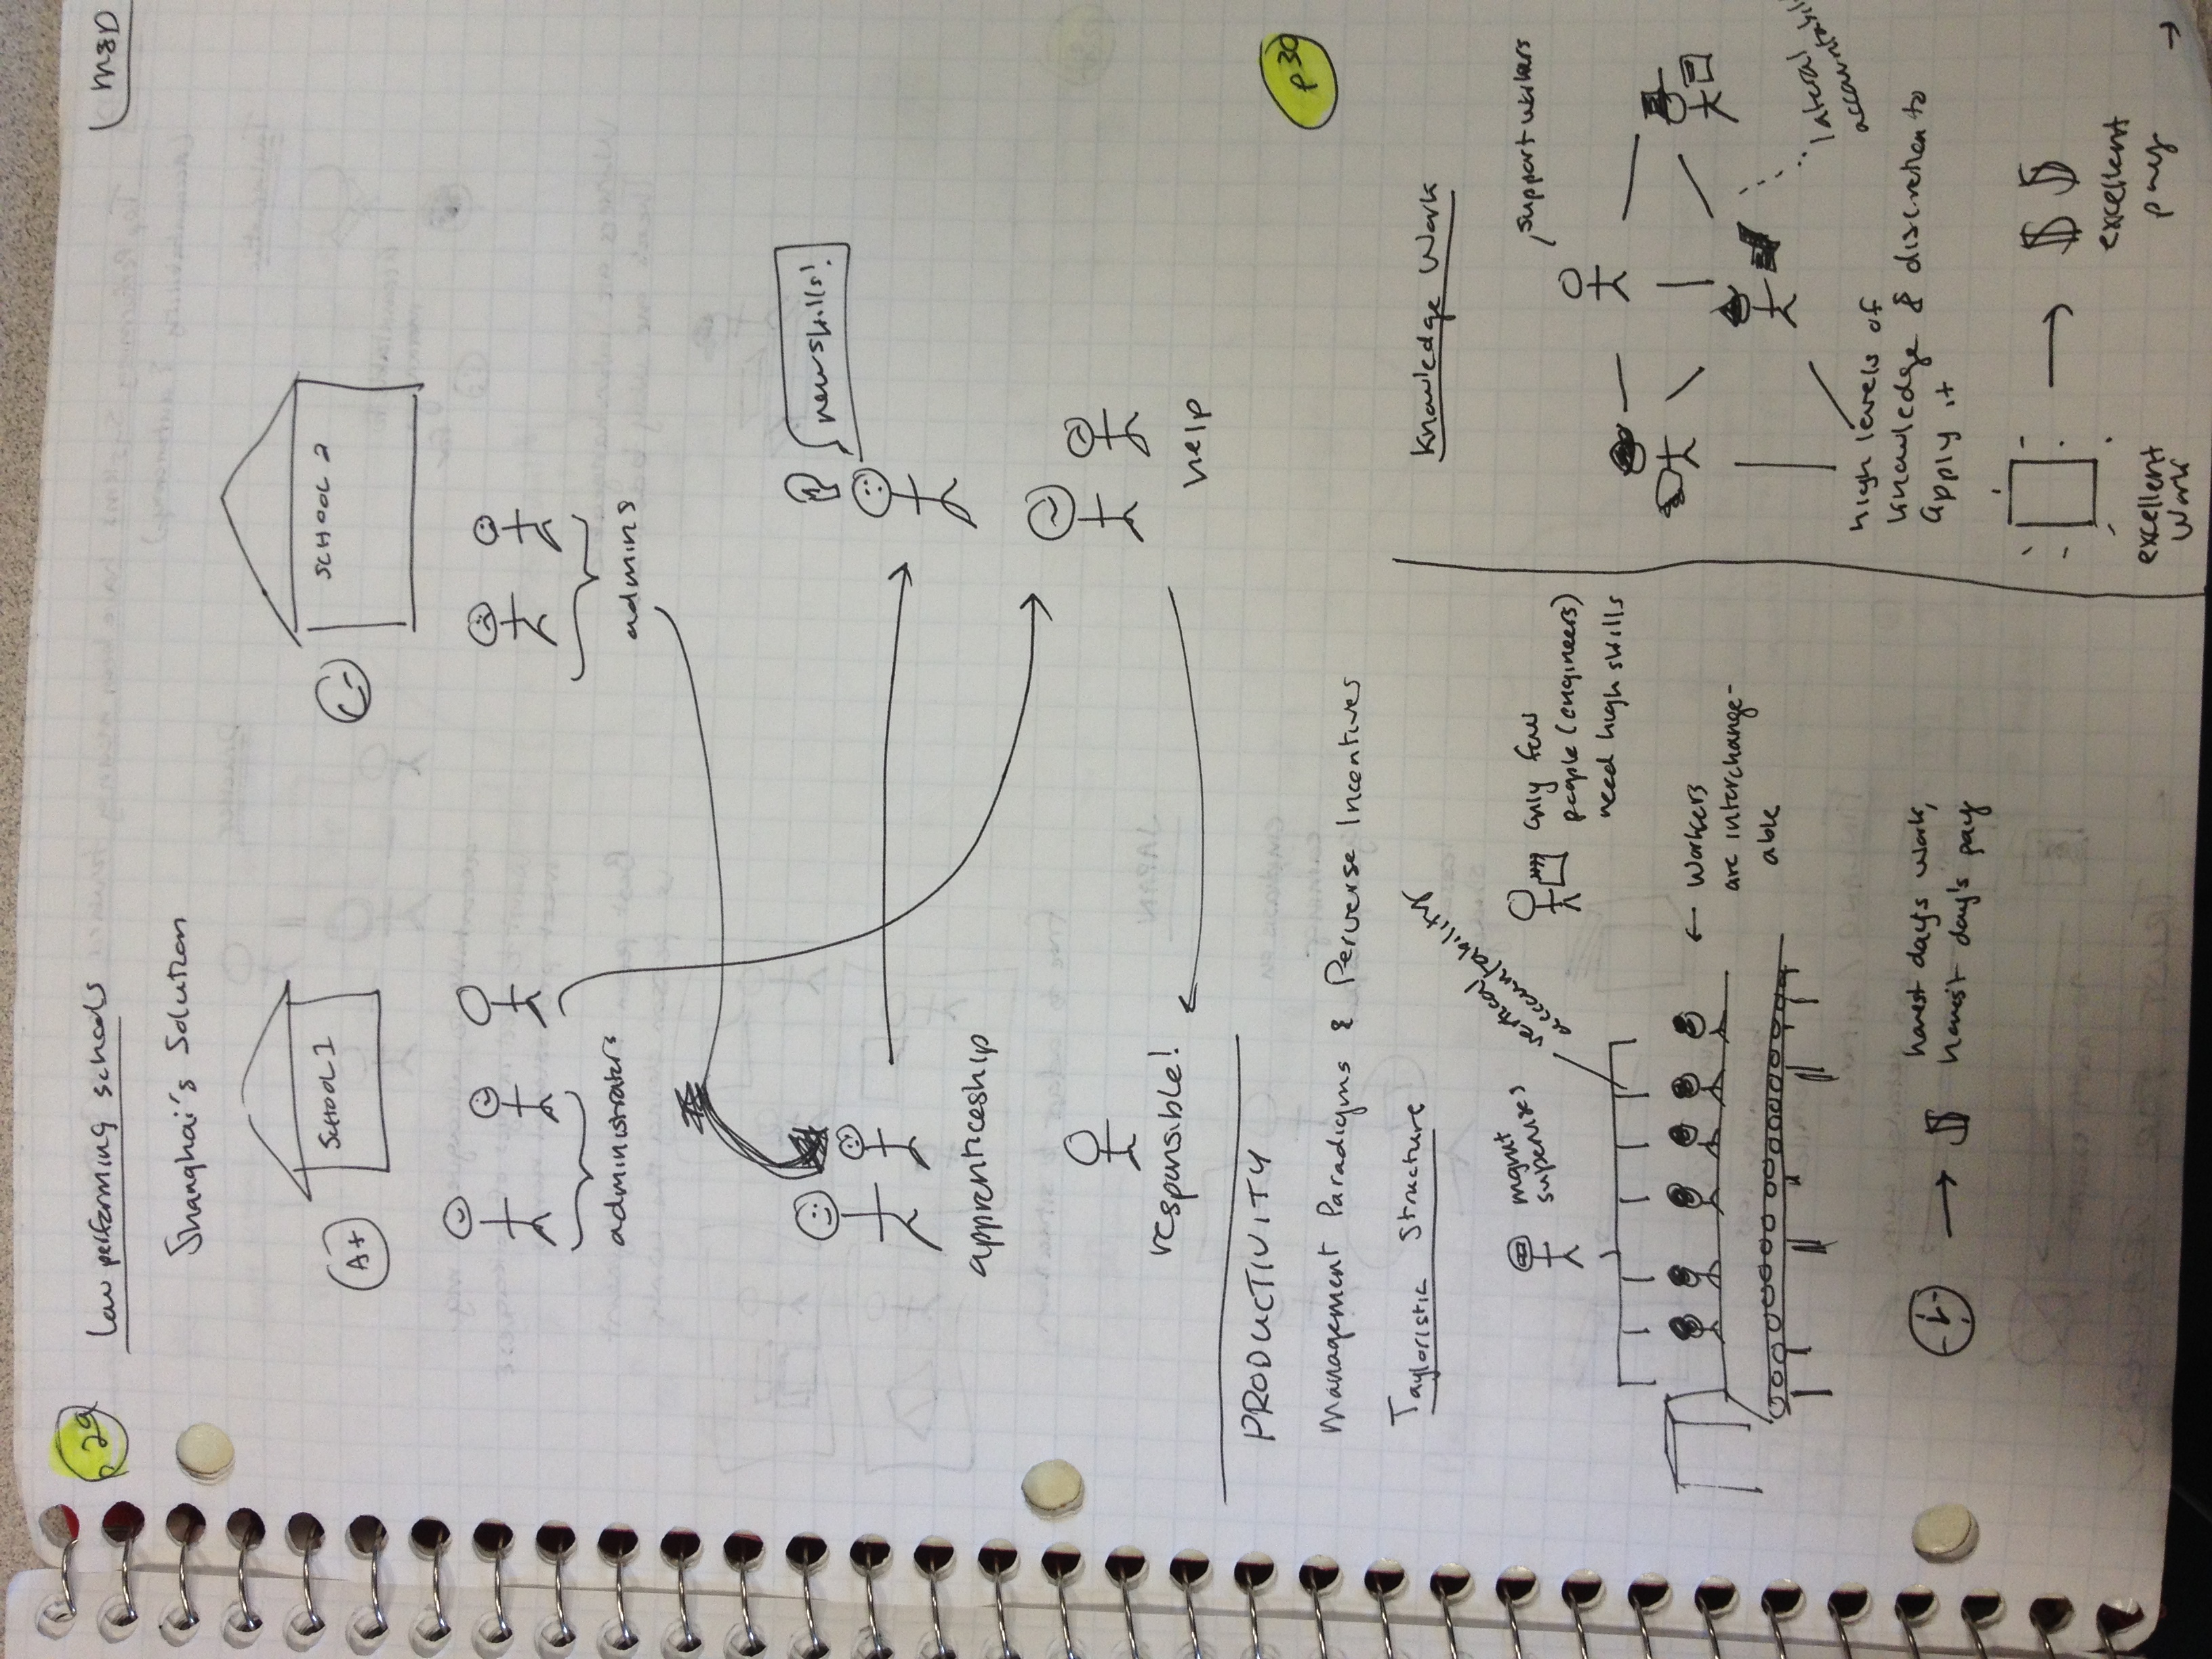 p 29
Low performing schools
M&D
Shanghai's Solution
SCHOOL 1
A+
SCHOOL 2
C-
administrators
admins
new skills!
apprenticeship
responsible!
help
PRODUCTIVITY
p30
Management Paradigms & Perverse Incentives
Tayloristic Structure
mgmt
supervises
vertical
accountability
only few
people (engineers)
need high skills
← Workers
are interchange-
able
→ $
honest day's work,
honest day's pay
Knowledge Work
support workers
lateral
accountabil
high levels of
knowledge & discretion to
apply it
→ $ $
excellent
work
excellent
pay
→